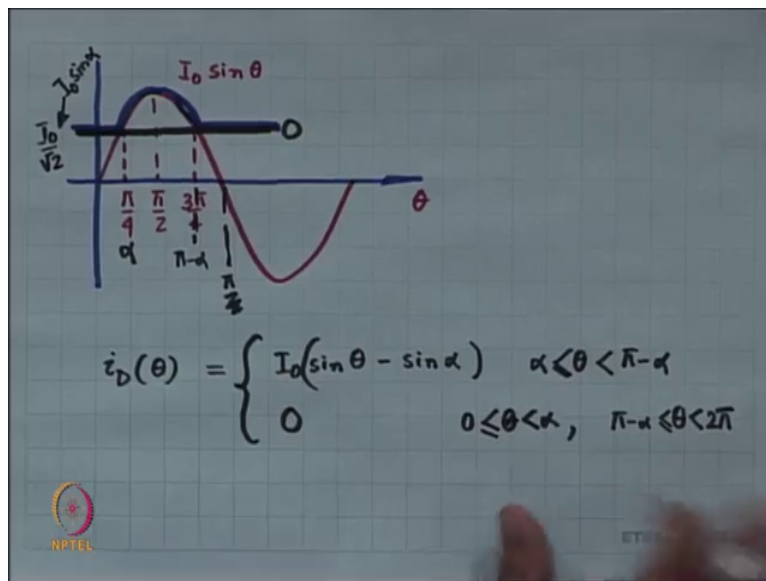 I₀ sin θ
I₀ sin α
I₀/√2
0
π/4 π/2 3π/4 θ
α π-α
π
i_D(θ) = { I₀(sin θ - sin α) α ≤ θ < π-α
0 0 ≤ θ < α, π-α ≤ θ < 2π
NPTEL